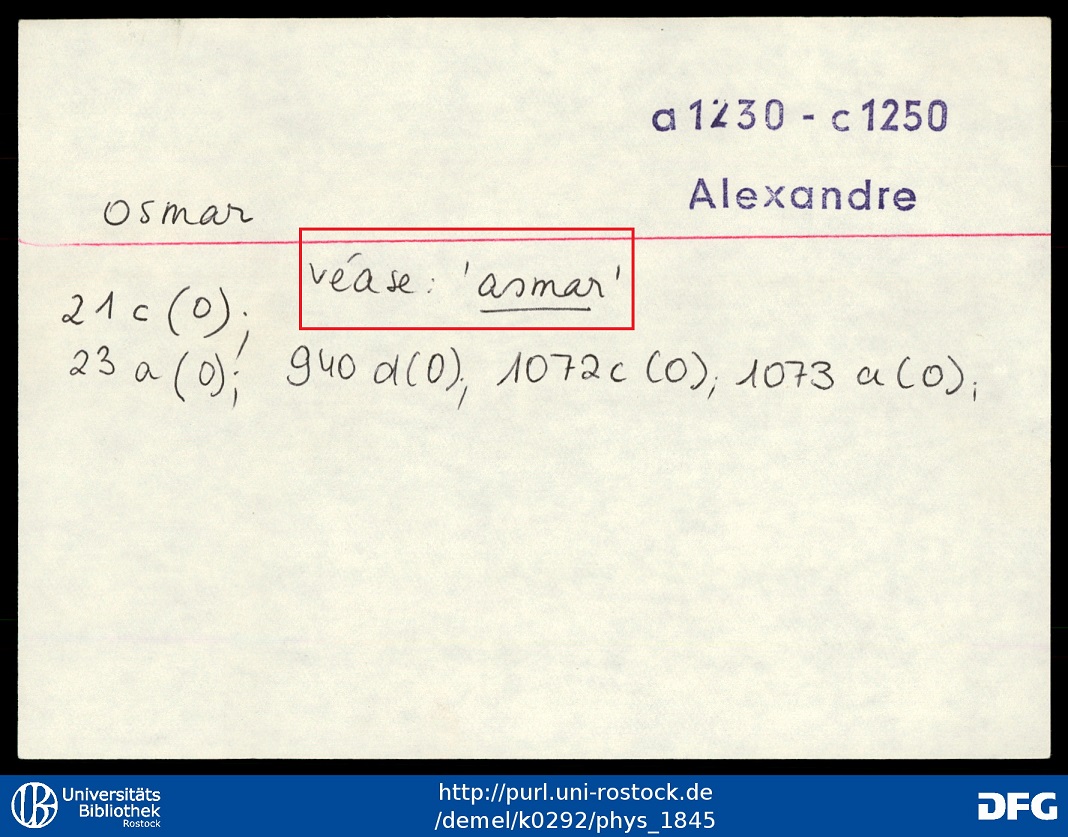 a 1230 - c 1250
Alexandre
osmar
véase: 'asmar'
21 c (O);
23 a (O); 940 d (O); 1072 c (O); 1073 a (O);
Universitäts
Bibliothek
Rostock
http://purl.uni-rostock.de
/demel/k0292/phys_1845
DFG